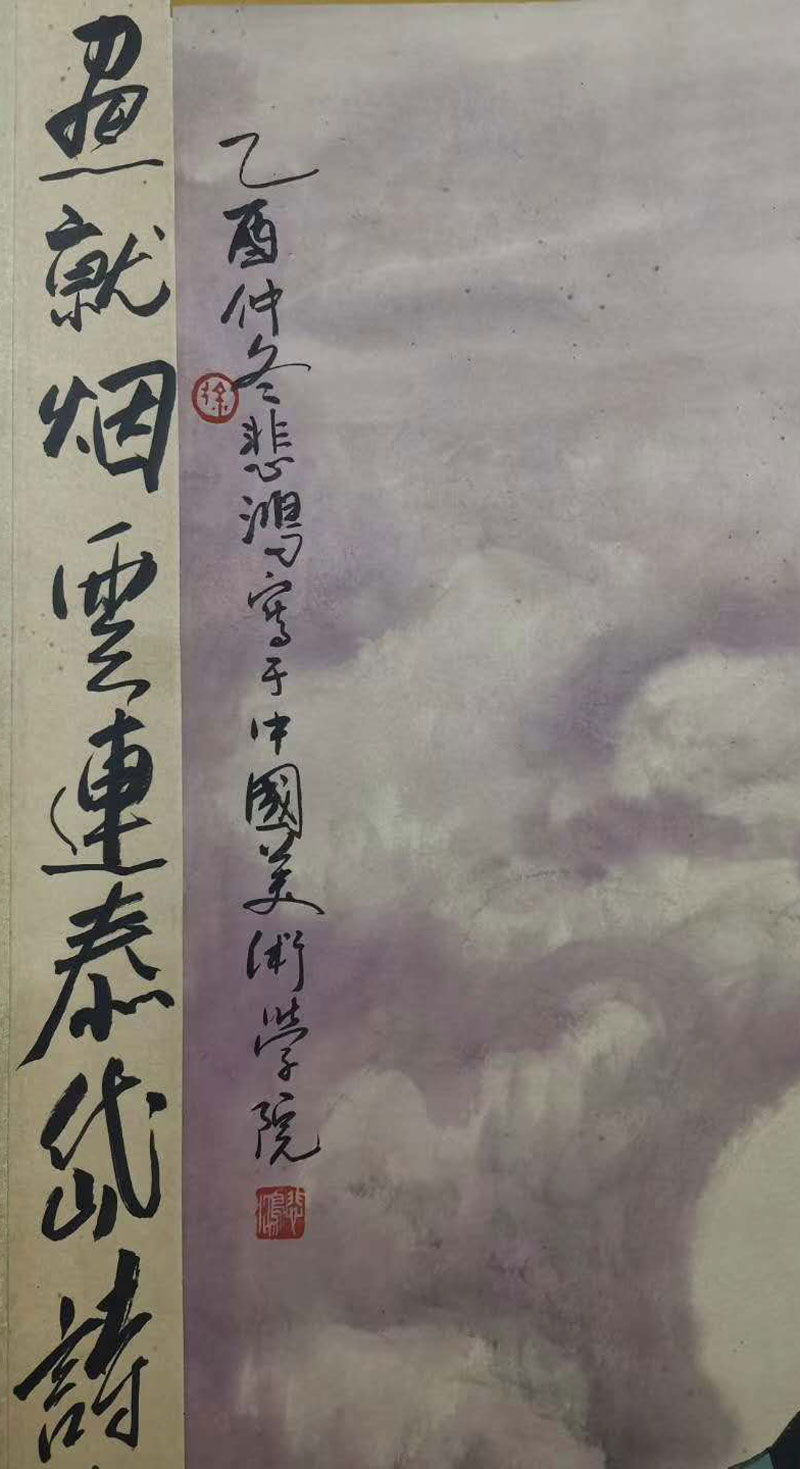 乙酉仲冬悲鴻寫于中國美術學院
徐
悲鴻
畫就烟雲連泰岱詩